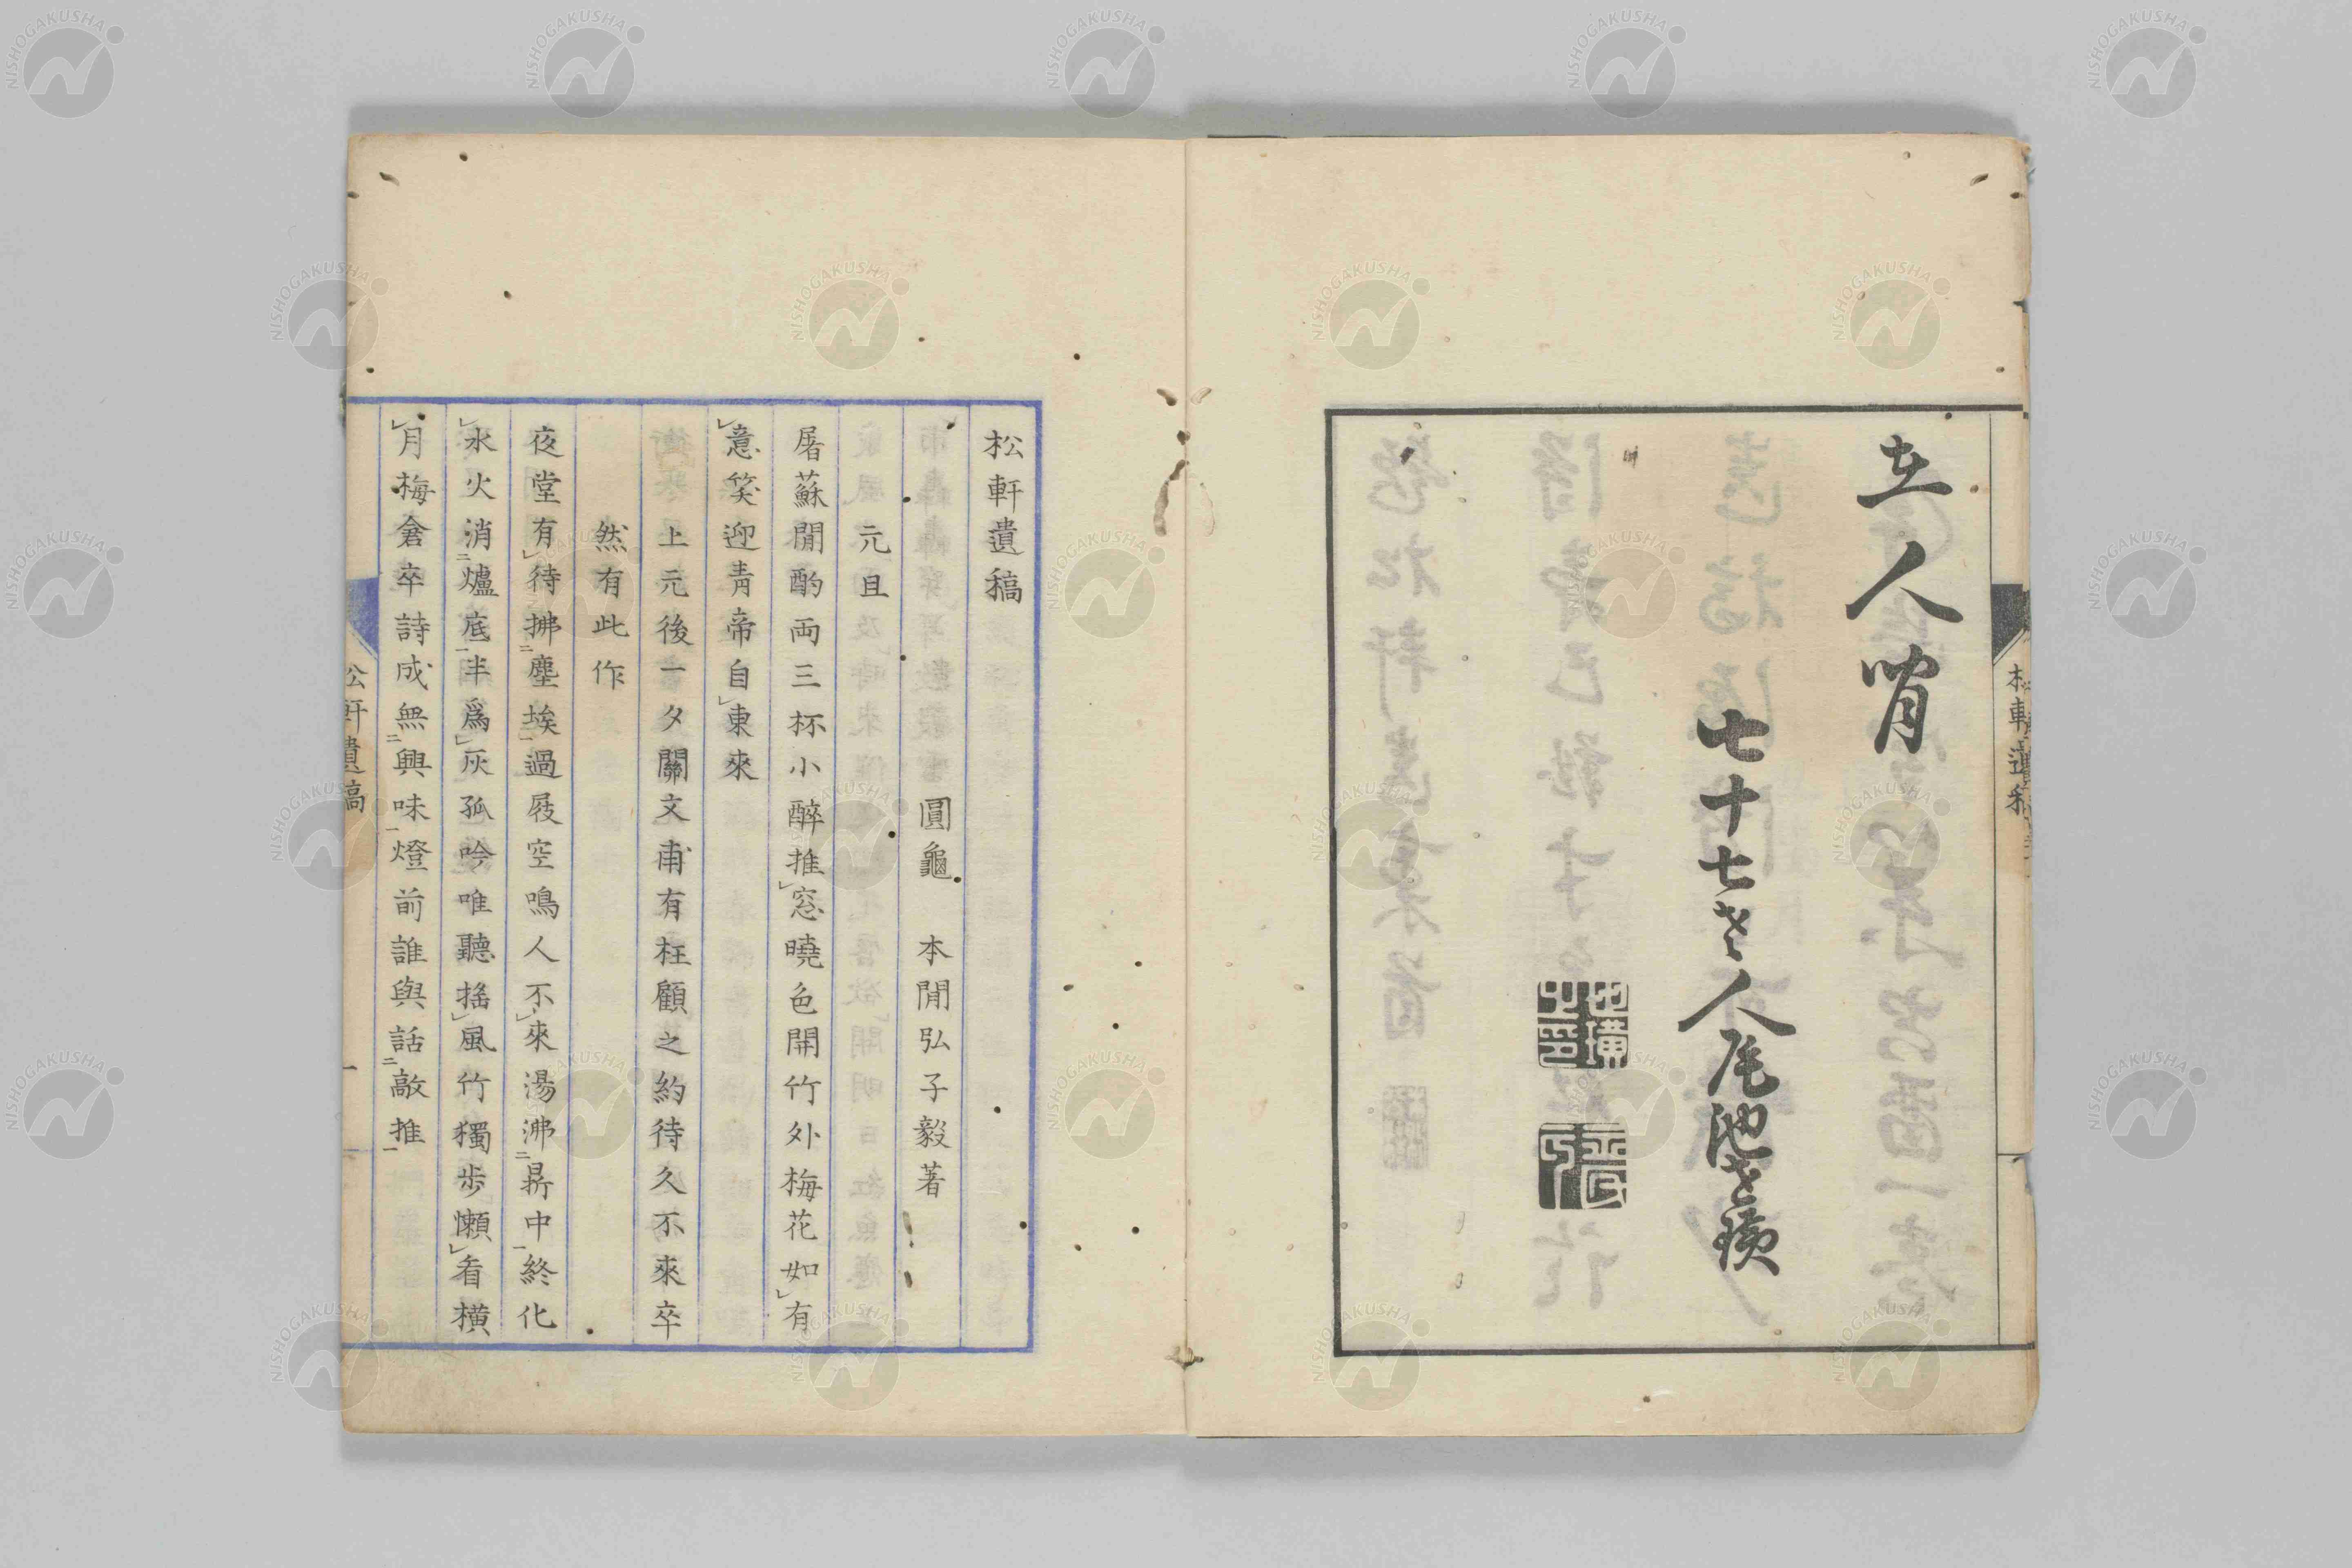 立人肖
七十七さ人尾池さ璜
松軒遺稿
圓龜 本閒弘子毅著
元且
屠蘇閒酌両三杯小醉推窓曉色開竹外梅花如有
意笑迎青帝自東來
上元後一夕關文甫有枉顧之約待久不來卒
然有此作
夜堂有待拂塵埃過屐空鳴人不來湯沸鼎中終化
水火消爐底半爲灰孤吟唯聽搖風竹獨步懶看橫
月梅倉卒詩成無興味燈前誰與話敲推
松軒遺稿 一
NISHOGAKUSHA